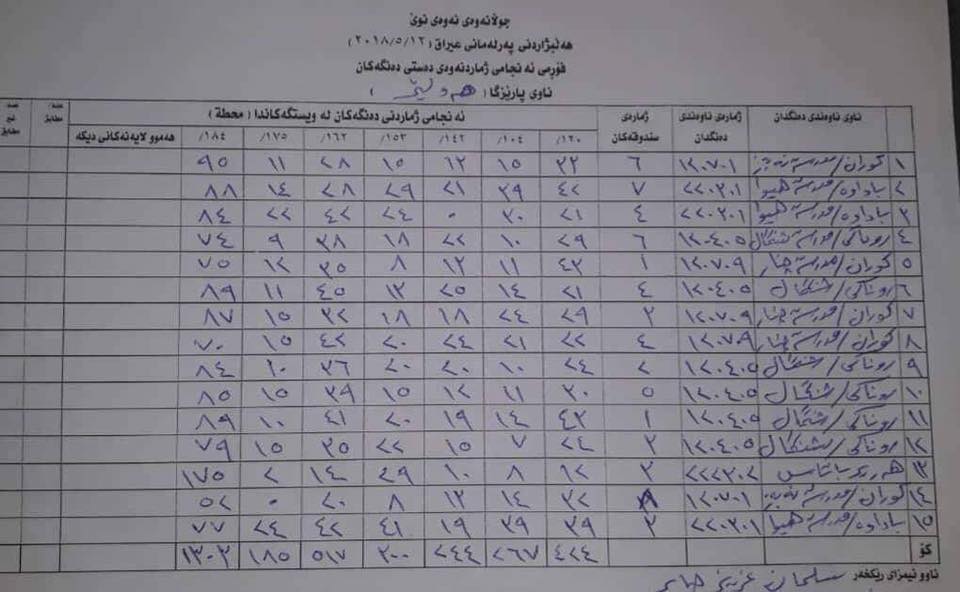 جوڵانەوەی نەوەی نوێ
هەڵبژاردنی پەرلەمانی عیراق (٢٠١٨/٥/١٢)
فۆرمی ئە نجامی ژماردنەوەی دەستی دەنگەکان
ناوی پارێزگا ( هەولێر )
ناوی ناوەندی دەنگدان ژمارەی ناوەندی دەنگدان ژمارەی سندوقەکان ئە نجامی ژماردنی دەنگەکان لە ویستگەکاندا ( محطة )
١٢٠/ ١٠٤/ ١٤٢/ ١٥٣/ ١٦٢/ ١٧٥/ ١٨٤/ هەموو لایەنەکانی دیکە
١ کوران/مدرسة ١٢٠٧٠١ ٦ ٣٣ ١٥ ١٣ ١٥ ٢٨ ١١ ٩٥
٢ باداوە/مدرسة هیوا ٢٢٠٣٠١ ٧ ٤٢ ٣٩ ٢١ ٢٩ ٢٨ ١٤ ٨٨
٣ باداوە/مدرسة هیوا ٢٢٠٣٠١ ٤ ٢١ ٣٠ ٠ ٢٤ ٤٢ ٢٢ ٨٤
٤ روناکی/مدرسة شنگال ١٢٠٤٠٥ ٦ ٢٩ ١٠ ٢٢ ١٨ ٣٨ ٩ ٧٤
٥ کوران/مدرسة چنار ١٢٠٧٠٩ ١ ٤٣ ١١ ١٣ ٨ ٣٥ ١٢ ٧٥
٦ روناکی/شنگال ١٢٠٤٠٥ ٤ ٢١ ١٤ ٢٥ ١٣ ٤٥ ١١ ٨٩
٧ کوران/مدرسة چنار ١٢٠٧٠٩ ٣ ٢٩ ٢٤ ١٨ ١٨ ٣٢ ١٥ ٨٧
٨ کوران/مدرسة چنار ١٢٠٧٠٩ ٤ ٢٢ ٢١ ٢٤ ٢٠ ٤٢ ١٥ ٧٠
٩ روناکی/شنگال ١٢٠٤٠٥ ٢ ٢٤ ١٠ ٢٠ ٢٠ ٣٦ ١٠ ٨٤
١٠ روناکی/شنگال ١٢٠٤٠٥ ٥ ٣٠ ١١ ١٢ ١٥ ٣٩ ١٥ ٨٥
١١ روناکی/شنگال ١٢٠٤٠٥ ١ ٤٣ ١٤ ١٩ ٢٠ ٤١ ١٠ ٨٩
١٢ روناکی/شنگال ١٢٠٤٠٥ ٣ ٢٤ ٧ ١٥ ٢٢ ٣٥ ١٥ ٧٩
١٣ هەریر باتاس ٢٢٢٣٠٢ ٣ ١٢ ٨ ١٠ ٢٩ ١٤ ٢ ١٧٥
١٤ کوران/مدرسة ١٢٠٧٠١ ٨ ٣٢ ١٤ ١٣ ٨ ٢٠ ٠ ٥٢
١٥ باداوە/مدرسة هیوا ٢٢٠٣٠١ ٣ ٣٩ ٣٩ ١٩ ٤١ ٤٢ ٢٤ ٧٧
کۆ ٤٢٤ ٢٦٧ ٢٤٤ ٣٠٠ ٥١٧ ١٨٥ ١٣٠٣
ناوو ئیمزای رێکخەر سلیمان عزیز